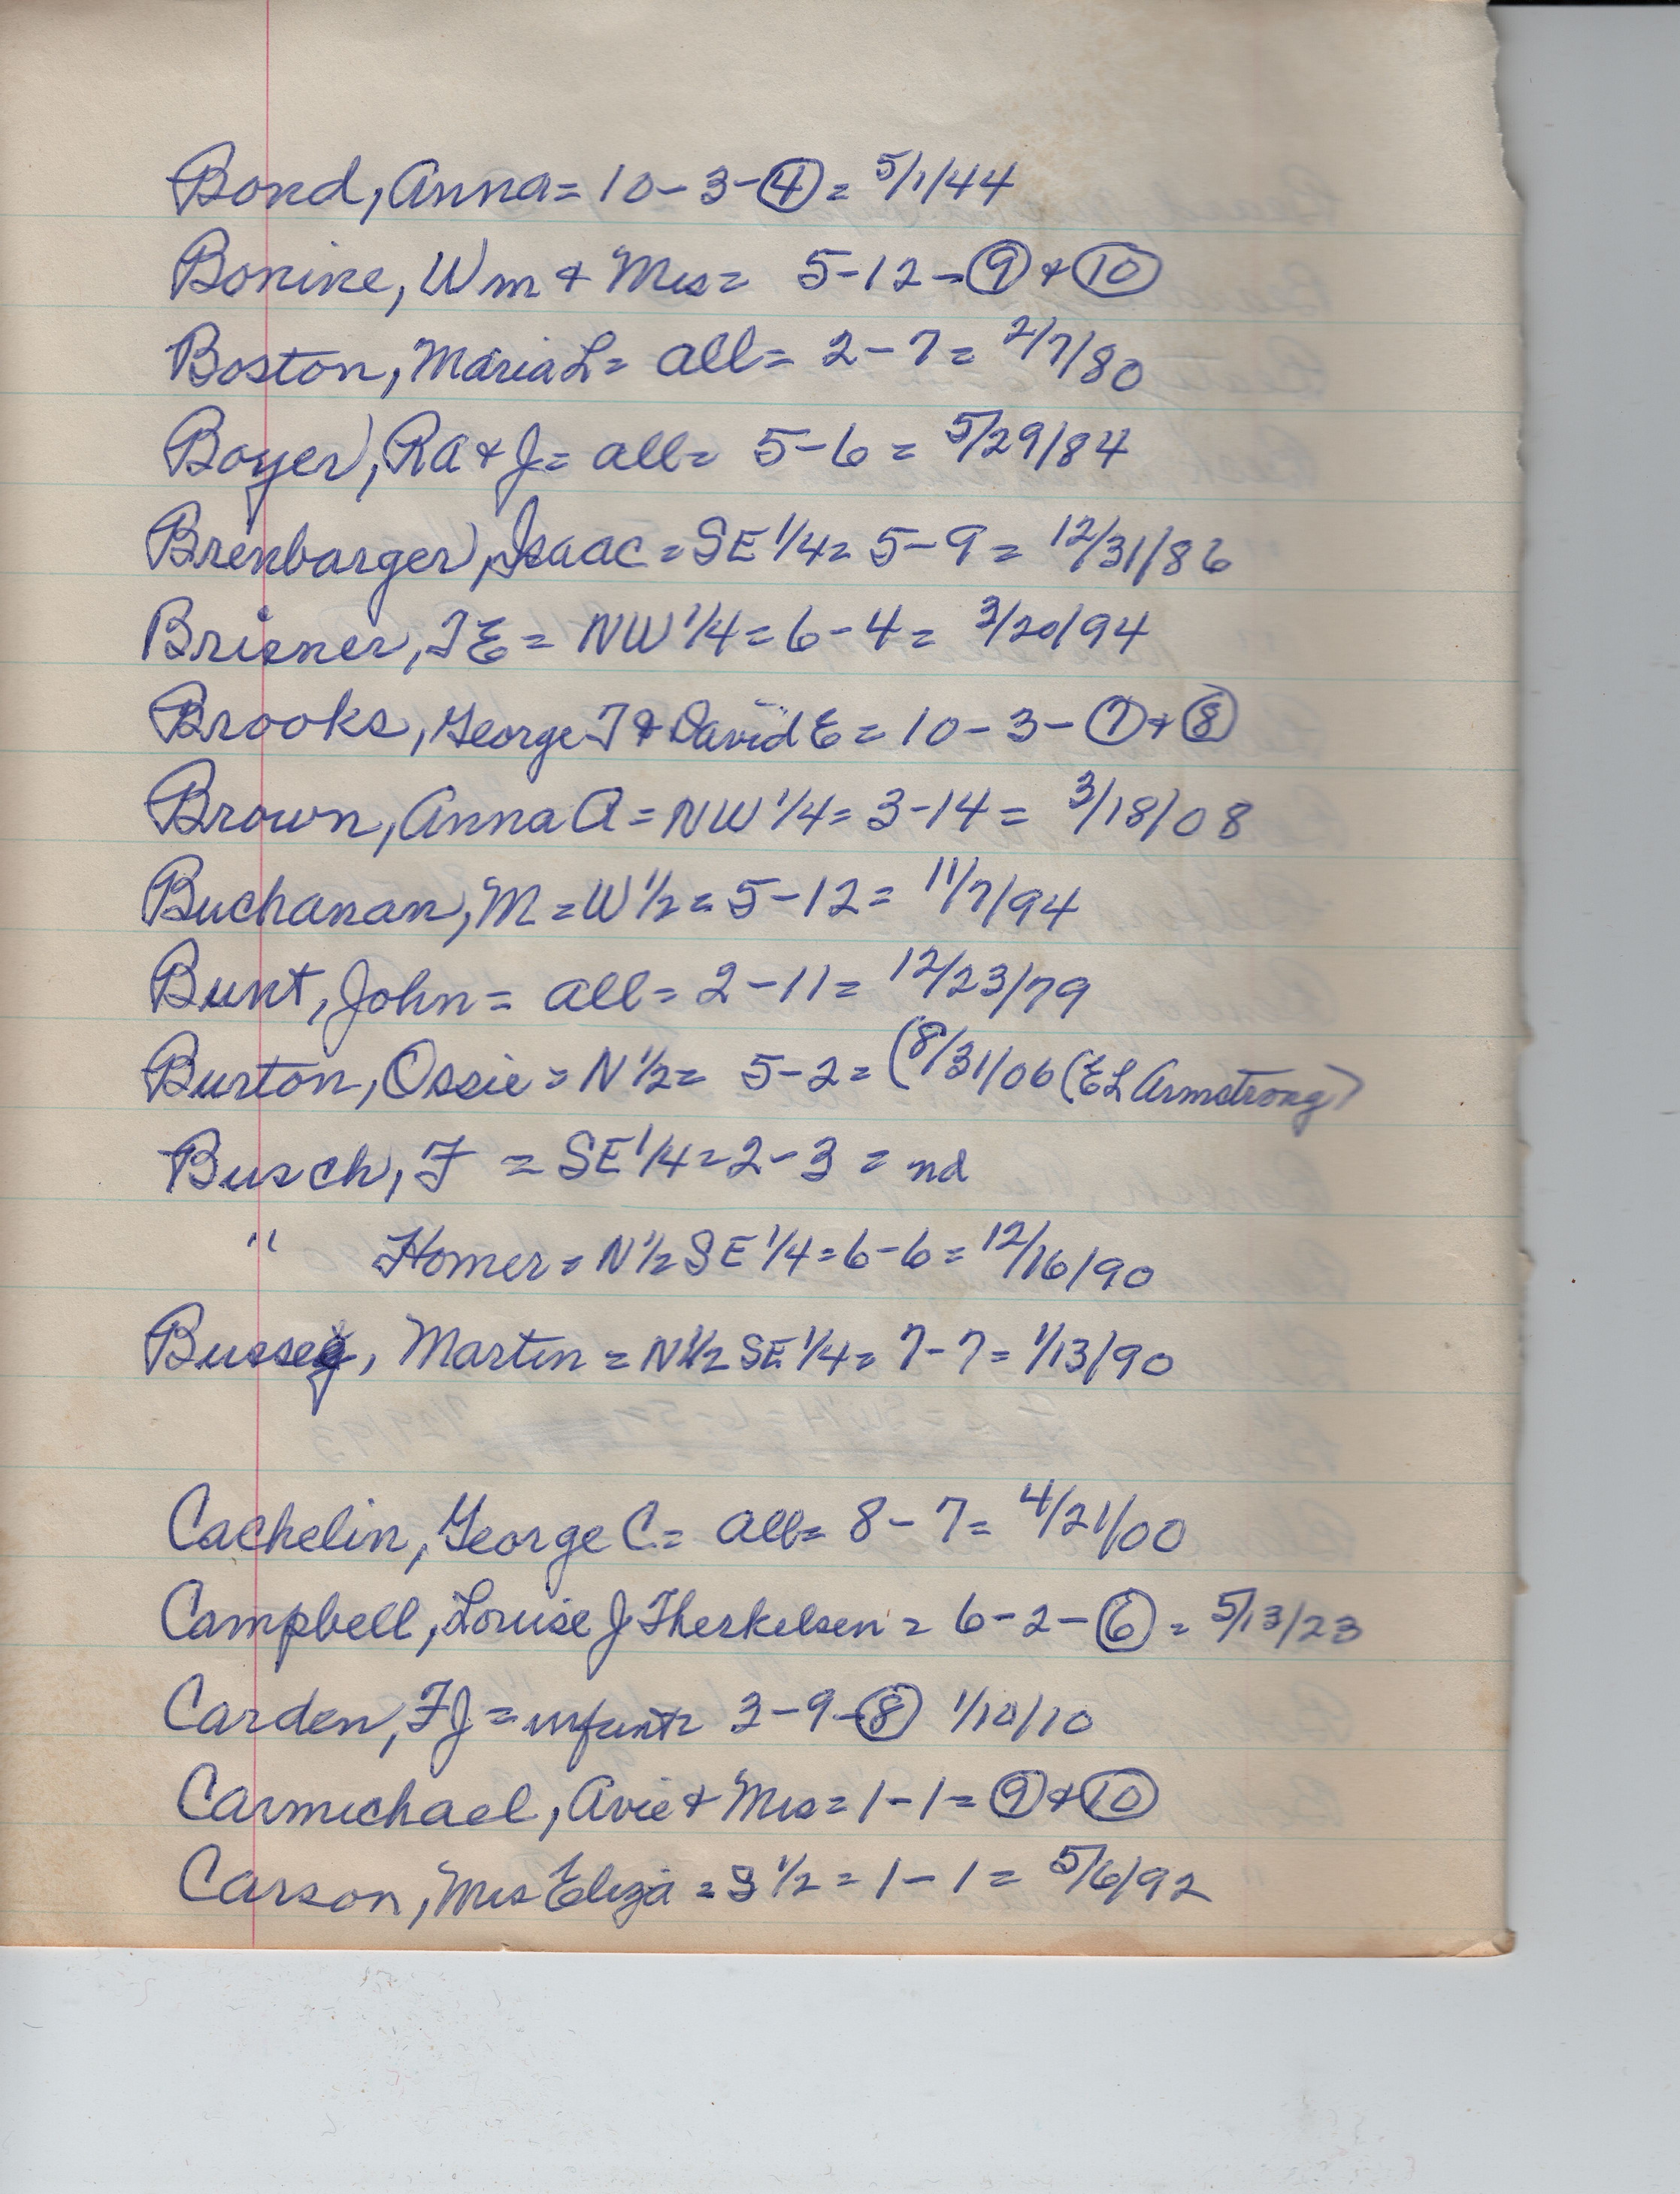 Bond, Anna = 10-3-④ = 5/1/44
Bonine, Wm & Mrs = 5-12-⑨ & ⑩
Boston, Maria L = all = 2-7 = 2/7/80
Boyer, RA & J = all = 5-6 = 5/29/84
Brenbarger, Isaac = SE 1/4 = 5-9 = 12/31/86
Brisner, TE = NW 1/4 = 6-4 = 3/20/94
Brooks, George T & David E = 10-3-⑦ & ⑧
Brown, Anna A = NW 1/4 = 3-14 = 3/18/08
Buchanan, M = W 1/2 = 5-12 = 11/7/94
Bunt, John = all = 2-11 = 12/23/79
Burton, Ossie = N 1/2 = 5-2 = (8/31/06 (EL Armstrong)
Busch, F = SE 1/4 = 2-3 = nd
" Homer = N 1/2 SE 1/4 = 6-6 = 12/16/90
Bussey, Martin = N 1/2 SE 1/4 = 7-7 = 1/13/90
Cachelin, George C = all = 8-7 = 4/21/00
Campbell, Louise J Therkelsen = 6-2-⑥ = 5/13/23
Carden, FJ = infant = 3-9-⑧ 1/10/10
Carmichael, Avie & Mrs = 1-1 = ⑨ & ⑩
Carson, Mrs Eliza = S 1/2 = 1-1 = 5/6/92